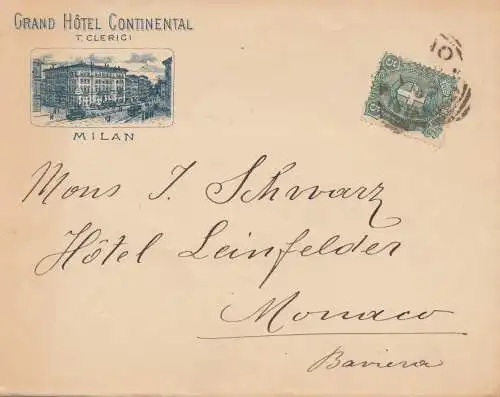 GRAND HÔTEL CONTINENTAL
T. CLERICI
MILAN
Mons J. Schwarz
Hôtel Leinfelder
Monaco
Baviera